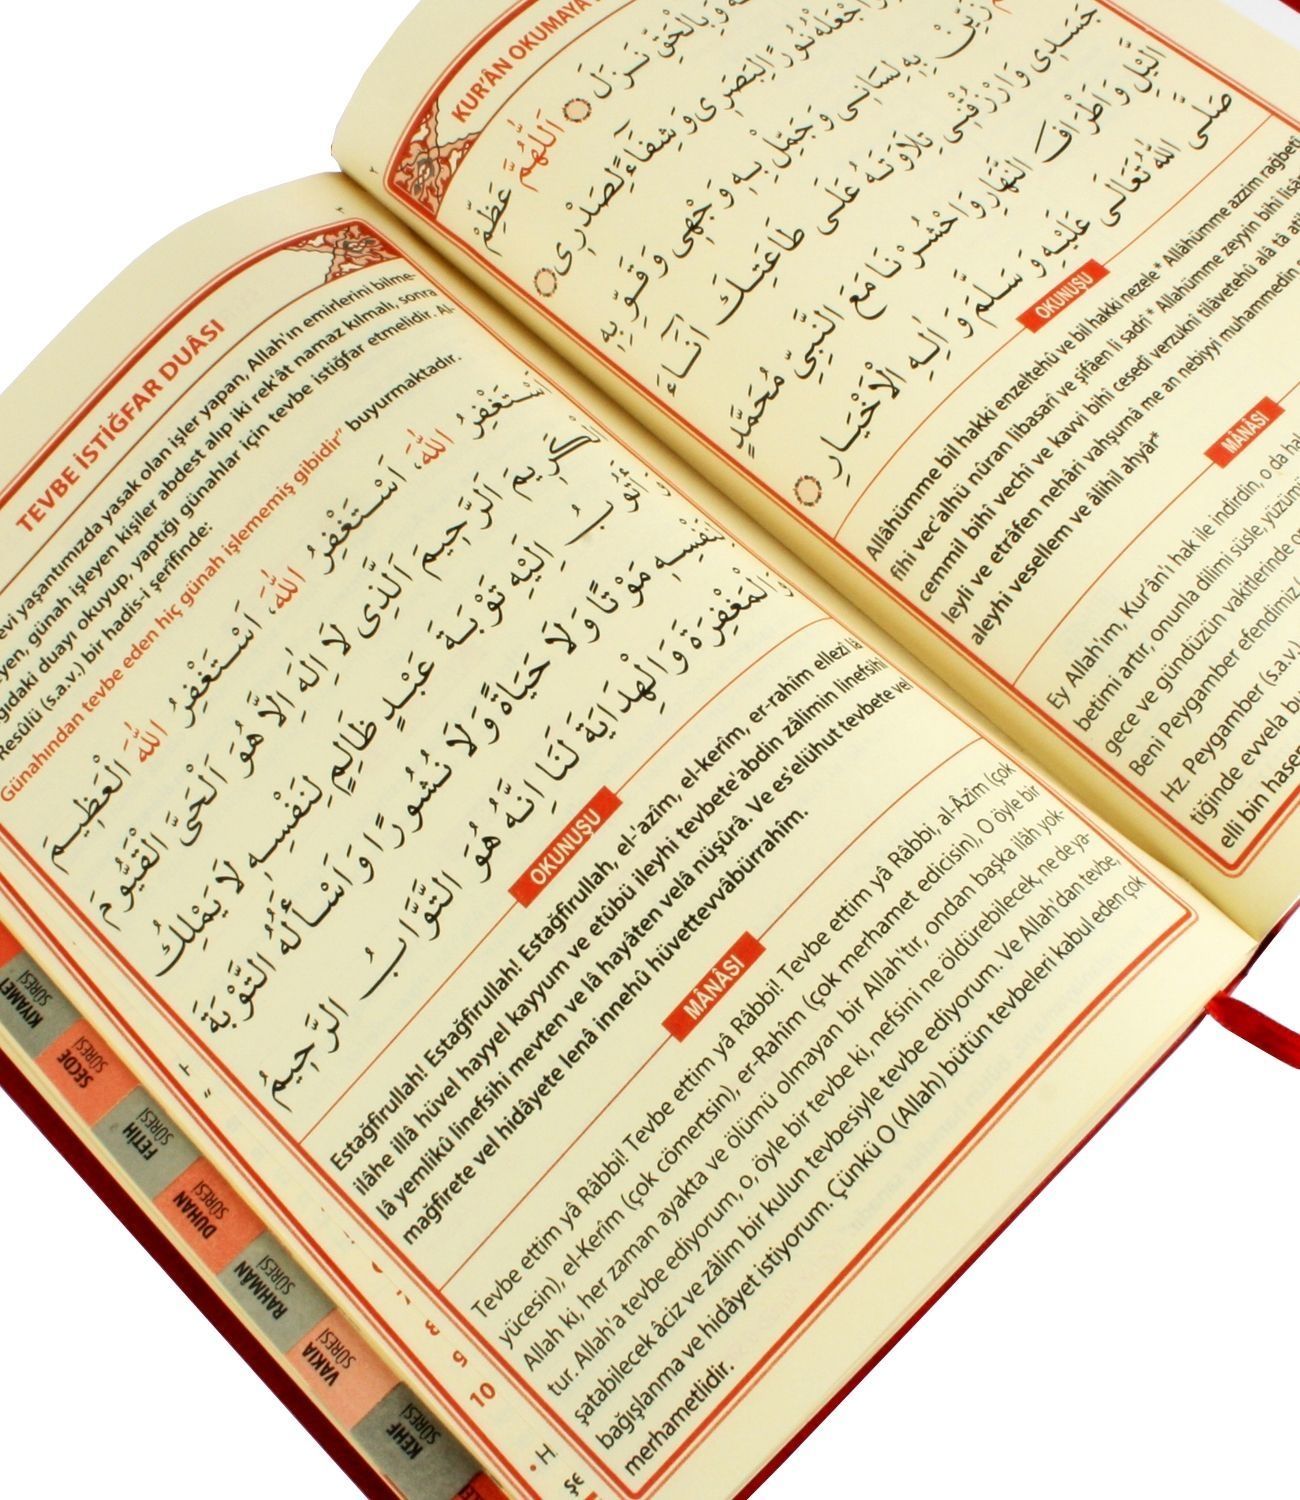 TEVBE İSTİĞFAR DUÂSI
evi yaşantımızda yasak olan işler yapan, Allah'ın emirlerini bilme-
yen, günah işleyen kişiler abdest alıp iki rek'ât namaz kılmalı, sonra
duayı okuyup, yaptığı günahlar için tevbe istiğfar etmelidir. Al-
Resûlü (s.a.v.) bir hadis-i şerifinde:
Günahından tevbe eden hiç günah işlememiş gibidir" buyurmaktadır.
اَسْتَغْفِرُ اللّٰهَ، اَسْتَغْفِرُ اللّٰهَ، اَسْتَغْفِرُ اللّٰهَ الْعَظِيمَ
الْكَرِيمَ الرَّحِيمَ اَلَّذِى لَا اِلٰهَ اِلَّا هُوَ الْحَىَّ الْقَيُّومَ
وَاَتُوبُ اِلَيْهِ تَوْبَةَ عَبْدٍ ظَالِمٍ لِنَفْسِهِ لَا يَمْلِكُ
لِنَفْسِهِ مَوْتًا وَلَا حَيَاةً وَلَا نُشُورًا وَاَسْأَلُهُ التَّوْبَةَ
وَالْمَغْفِرَةَ وَالْهِدَايَةَ لَنَا اِنَّهُ هُوَ التَّوَّابُ الرَّحِيمُ
OKUNUŞU
Estağfirullah! Estağfirullah! Estağfirullah, el-'azîm, el-kerîm, er-rahîm ellezî lâ
ilâhe illâ hüvel hayyel kayyum ve etûbü ileyhi tevbete'abdin zâlimin linefsihî
lâ yemlikû linefsihî mevten ve lâ hayâten velâ nüşûrâ. Ve es'elühut tevbete vel
mağfirete vel hidâyete lenâ innehû hüvettevvâbürrahîm.
MÂNÂSI
Tevbe ettim yâ Râbbi! Tevbe ettim yâ Râbbi! Tevbe ettim yâ Râbbi, al-Âzîm (çok
yücesin), el-Kerîm (çok cömertsin), er-Rahîm (çok merhamet edicisin), O öyle bir
Allah ki, her zaman ayakta ve ölümü olmayan bir Allah'tır, ondan başka ilâh yok-
tur. Allah'a tevbe ediyorum, o, öyle bir tevbe ki, nefsini ne öldürebilecek, ne de ya-
şatabilecek âciz ve zâlim bir kulun tevbesiyle tevbe ediyorum. Ve Allah'dan tevbe,
bağışlanma ve hidâyet istiyorum. Çünkü O (Allah) bütün tevbeleri kabul eden çok
merhametlidir.
KUR'ÂN OKUMAYA
وَبِالْحَقِّ نَزَلَ اَللّٰهُمَّ عَظِّمْ
وَاجْعَلْهُ نُورًا لِبَصَرِى وَشِفَاءً لِصَدْرِى
زَيِّنْ بِهِ لِسَانِى وَجَمِّلْ بِهِ وَجْهِى وَقَوِّ بِهِ
جَسَدِى وَارْزُقْنِى تِلَاوَتَهُ عَلَى طَاعَتِكَ اٰنَاءَ
الَّيْلِ وَاَطْرَافَ النَّهَارِ وَاحْشُرْنَا مَعَ النَّبِىِّ مُحَمَّدٍ
صَلَّى اللّٰهُ تَعَالَى عَلَيْهِ وَسَلَّمَ وَاٰلِهِ الْاَخْيَارِ
OKUNUŞU
Allâhümme bil hakki enzeltehû ve bil hakki nezele* Allâhümme azzim rağbetî
fîhi vec'alhü nûran libasarî ve şifâen li sadrî* Allahümme zeyyin bihî lisâ
cemmil bihî vechî ve kavvi bihî cesedî verzuknî tilâvetehû alâ tâ
leyli ve etrâfen nehâri vahşurnâ me an nebiyyi muhammedin
aleyhi vesellem ve âlihil ahyâr*
MÂNÂSI
Ey Allah'ım, Kur'ân'ı hak ile indirdin, o da
betimi artır, onunla dilimi süsle, yüzümü
gece ve gündüzün vakitlerinde
Beni Peygamber efendimiz
Hz. Peygamber (s.a.v.)
tiğinde evvela
elli bin
KIYAMET SÛRESİ
SECDE SÛRESİ
FETİH SÛRESİ
DUHAN SÛRESİ
RAHMÂN SÛRESİ
VAKIA SÛRESİ
KEHF SÛRESİ
10